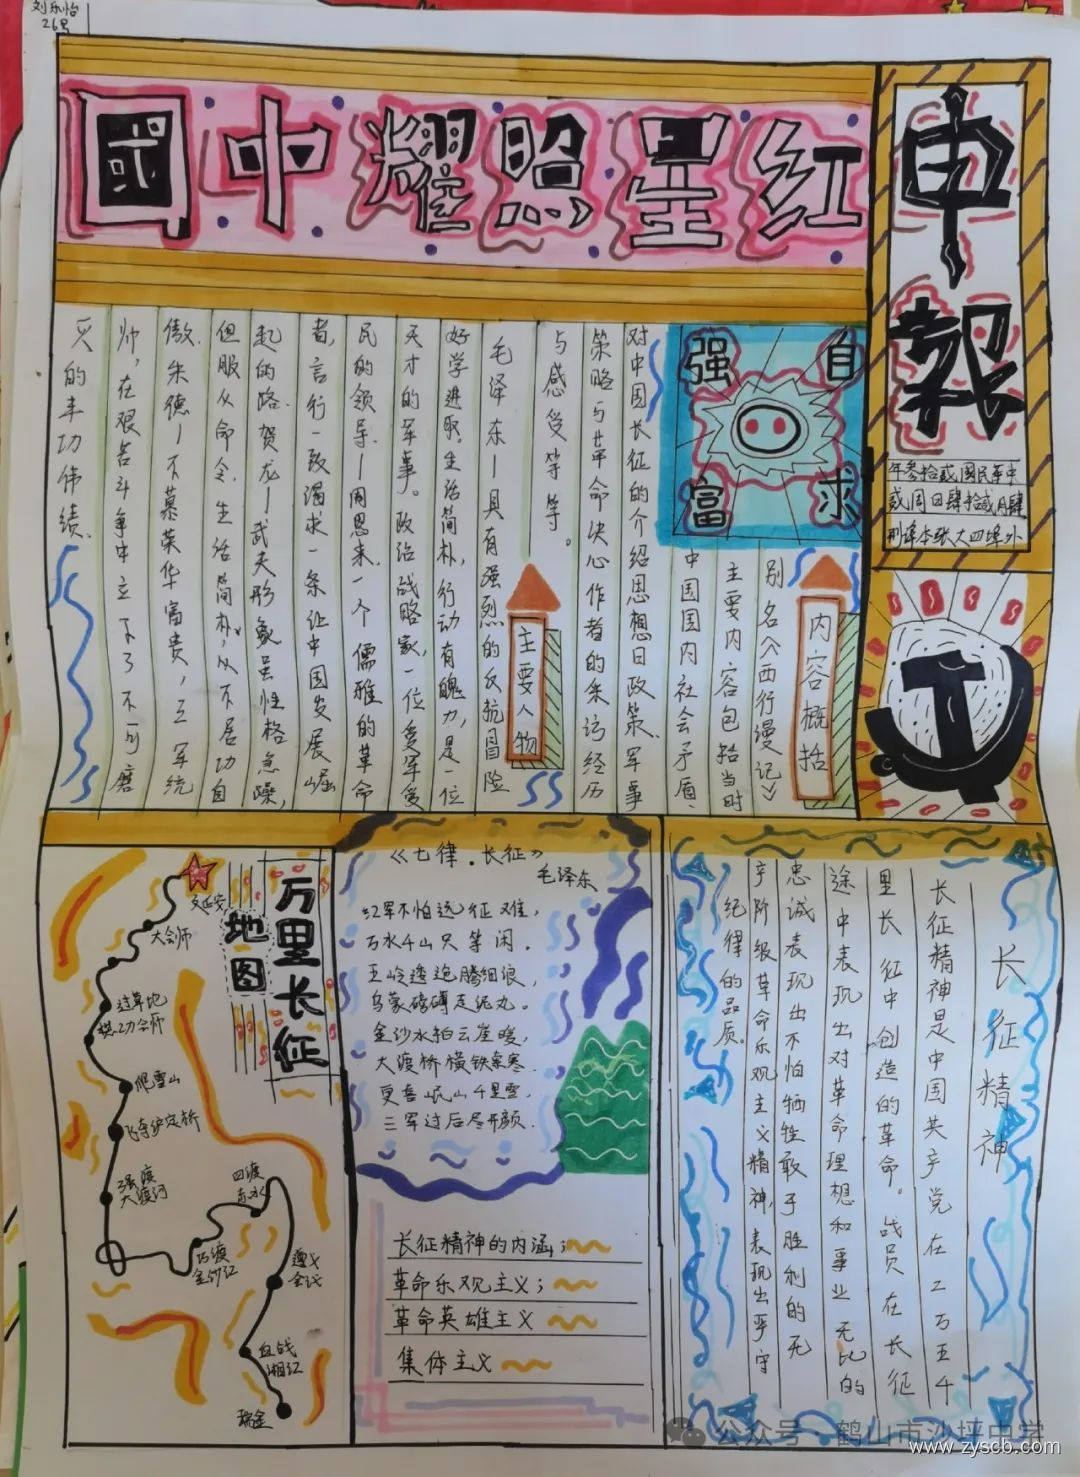 刘乐怡
26号
國中耀照星红
申報
年叁拾貳國民華中
貳周日肆拾貳月肆
刊译本张大四埠外
自
强
求
富
内容概括
别名《西行漫记》
主要内容包括当时
中国国内社会矛盾、
对中国长征的介绍思想日政策、军事
策略与革命决心作者的采访经历
与感受等等。
主要人物
毛泽东—具有强烈的反抗冒险
好学进取。生活简朴,行动有魄力,是一位
天才的军事。政治战略家,一位爱军爱
民的领导—周恩来、一个儒雅的革命
者,言行一致渴求一条让中国发展崛
起的路、贺龙—武夫形象虽性格急躁,
但服从命令、生活简朴,从不居功自
傲、朱德—不慕荣华富贵,三军统
帅,在艰苦斗争中立下了不可磨
灭的丰功伟绩、
万里长征
地图
延安
大会师
过草地
会师
爬雪山
飞夺泸定桥
强渡
大渡河
巧渡
金沙江
四渡
赤水
遵义
会议
血战
湘江
瑞金
《七律.长征》
毛泽东
红军不怕远征难,
万水千山只等闲.
五岭逶迤腾细浪,
乌蒙磅礴走泥丸。
金沙水拍云崖暖,
大渡桥横铁索寒.
更喜岷山千里雪,
三军过后尽开颜.
长征精神的内涵;
革命乐观主义;
革命英雄主义
集体主义
长征精神
长征精神是中国共产党在二万五千
里长征中创造的革命。战员在长征
途中表现出对革命理想和事业无比的
忠诚表现出不怕牺牲敢于胜利的无
产阶级革命乐观主义精神,表现出严守
纪律的品质.
公众号·鹤山市沙坪中学
www.zyscb.com